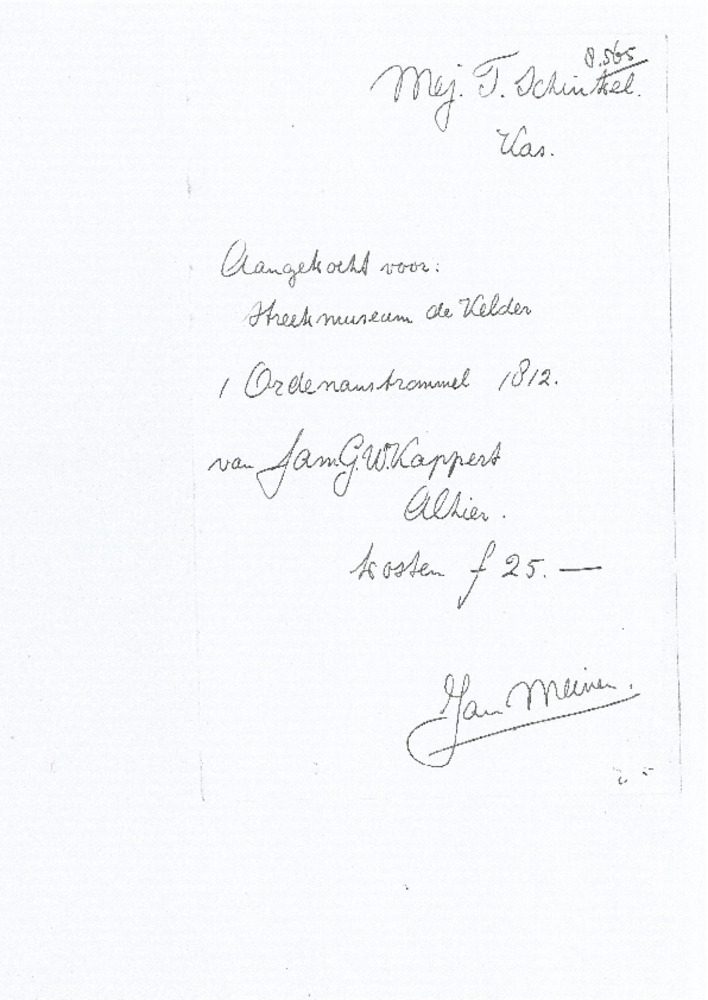 8.565
Mej. T. Schinkel.
Kas.
Aangekocht voor:
Streekmuseum de Kelder
1 Ordenanstrommel 1812.
van Jan G.W. Kappert
Alhier.
kosten f 25.—
Jan